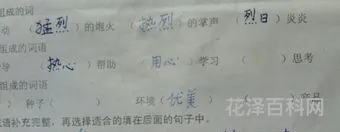 组成的词
动 (猛烈)的炮火 (热烈)的掌声 (烈日)炎炎
组成的词语
导 (热心)帮助 (用心)学习 ( )思考
组成的词语
) 种子( ) 环境(优美) ( )产品
语补充完整，再选择适合的填在后面的句子中。
花泽百科网